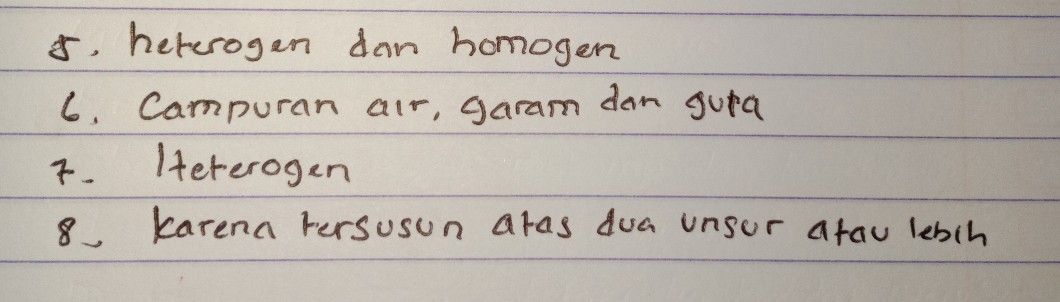 5. heterogen dan homogen
6. Campuran air, garam dan gula
7. Heterogen
8. karena tersusun atas dua unsur atau lebih